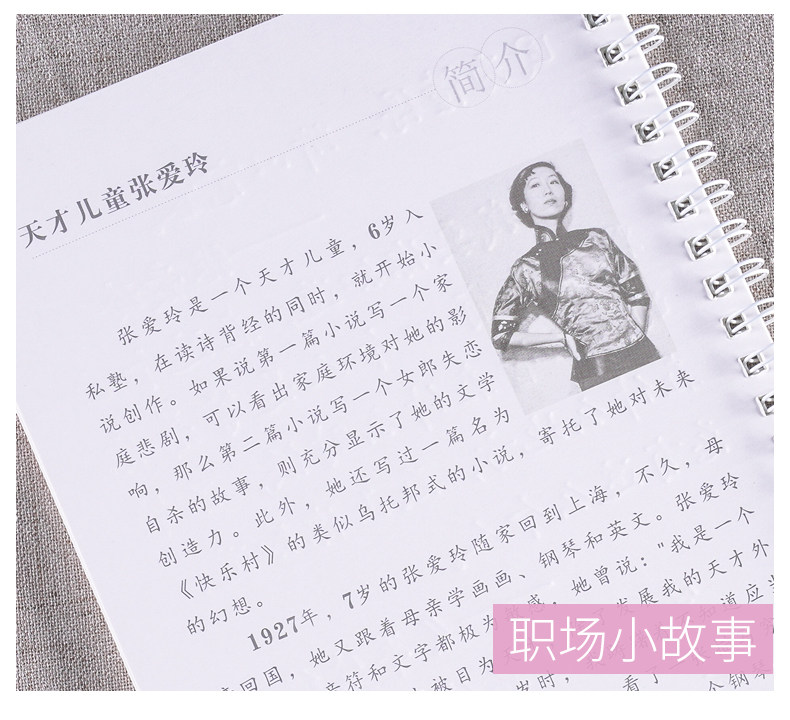 简介
天才儿童张爱玲
张爱玲是一个天才儿童，6岁入
私塾，在读诗背经的同时，就开始小
说创作。如果说第一篇小说写一个家
庭悲剧，可以看出家庭环境对她的影
响，那么第二篇小说写一个女郎失恋
自杀的故事，则充分显示了她的文学
创造力。此外，她还写过一篇名为
《快乐村》的类似乌托邦式的小说，寄托了她对未来
的幻想。
1927年，7岁的张爱玲随家回到上海，不久，母
回国，她又跟着母亲学画画、钢琴和英文。张爱玲
音符和文字都极为 感，她曾说："我是一个
被目为 发展我的天才外
岁时， 知道应当
看了 个钢琴
职场小故事